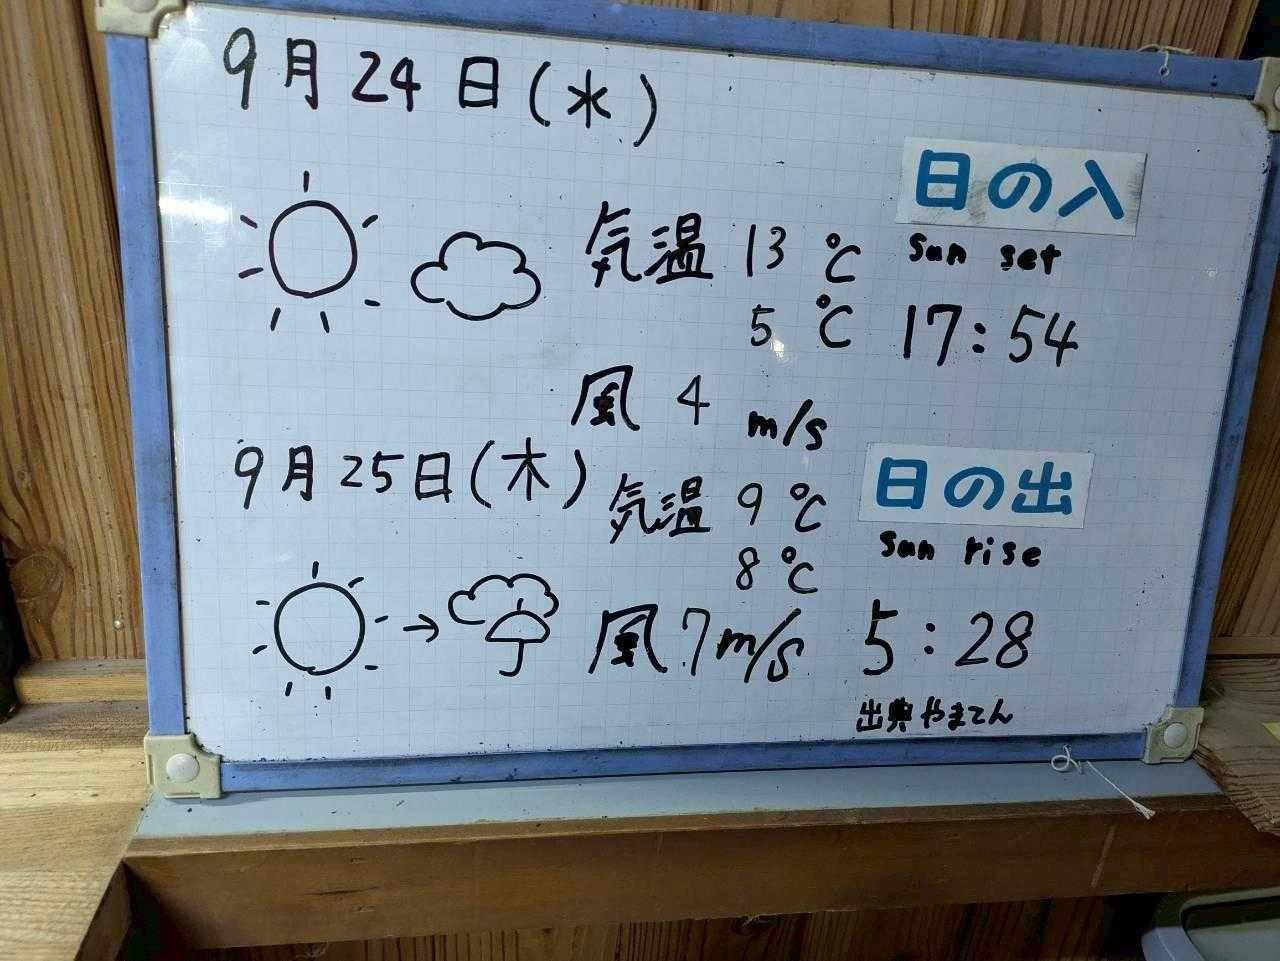 9月24日(水)
日の入
sun set
気温 13℃
5℃
17:54
風 4 m/s
9月25日(木)
気温 9℃
8℃
日の出
sun rise
風 7m/s
5:28
出典やまてん